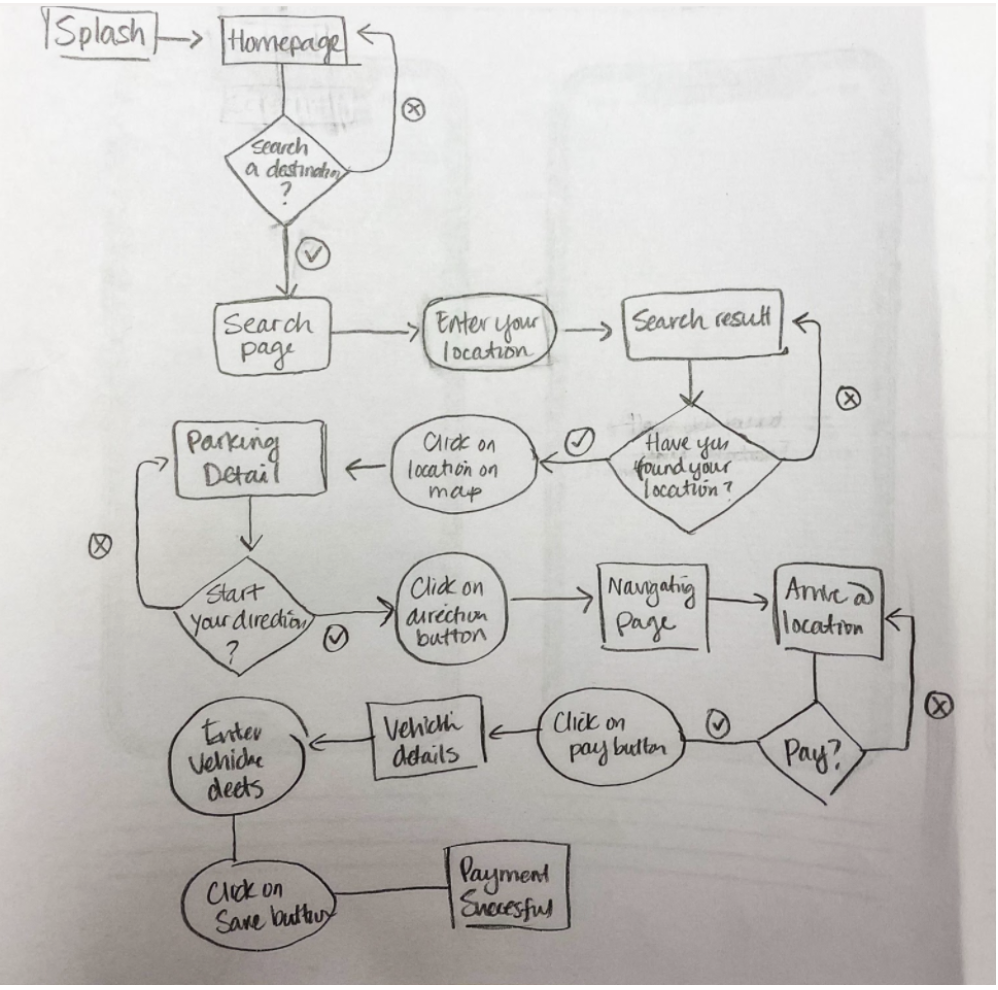 Splash
Homepage
Search
a destination
?
Search
page
Enter your
location
Search result
Have you
found your
location?
Click on
location on
map
Parking
Detail
Start
your direction
?
Click on
direction
button
Navigating
Page
Arrive @
location
Pay?
Click on
pay button
details
Enter
vehicle
deets
Click on
Save button
Payment
Succesful